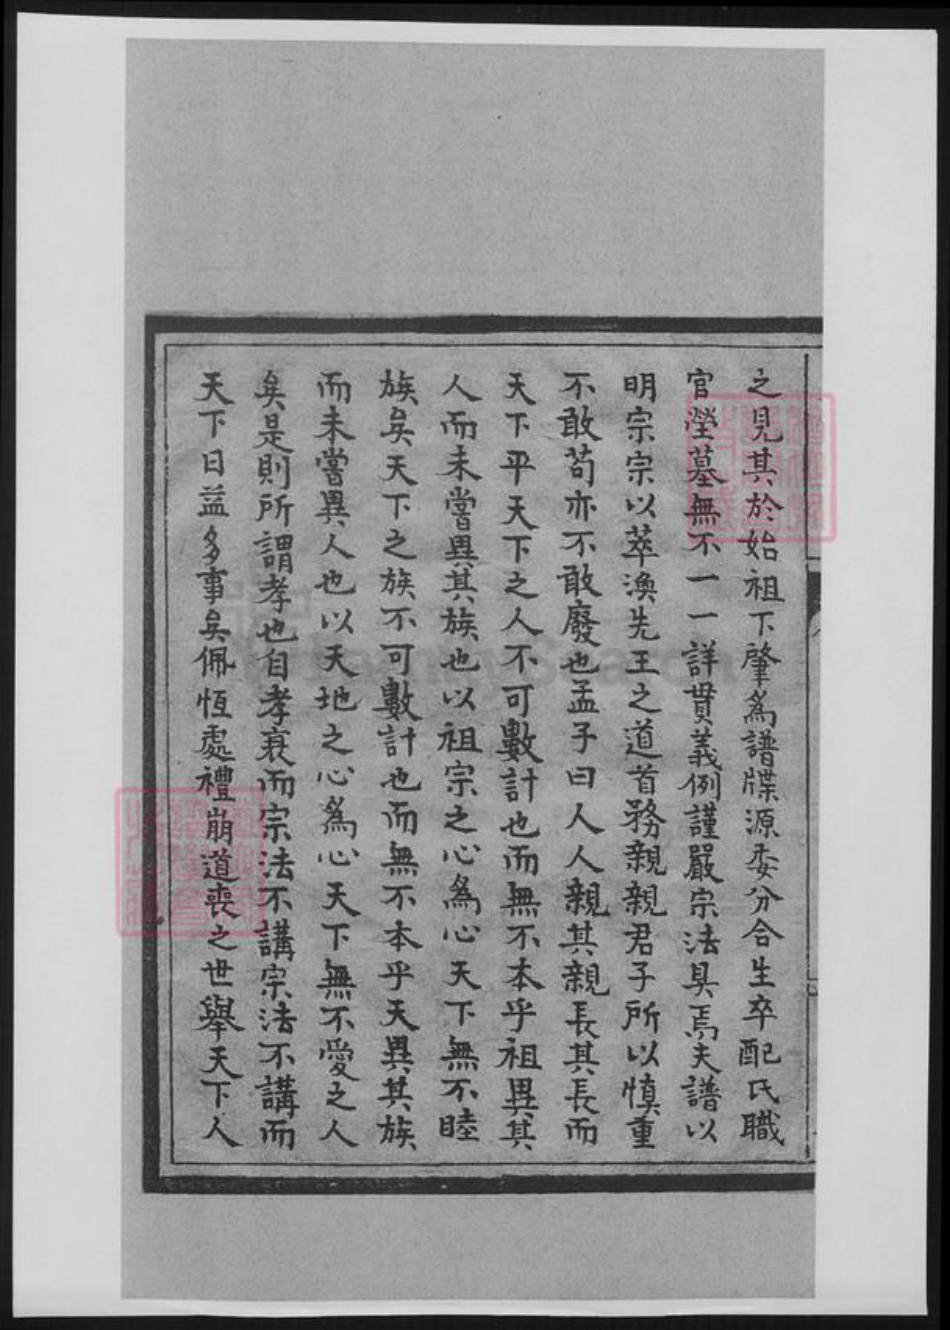 之見其於始祖下肇為譜牒源委分合生卒配氏職
官塋墓無不一一詳貫義例謹嚴宗法具焉夫譜以
明宗宗以萃渙先王之道首務親親君子所以慎重
不敢苟亦不敢廢也孟子曰人人親其親長其長而
天下平天下之人不可數計也而無不本乎祖異其
人而未嘗異其族也以祖宗之心為心天下無不睦
族矣天下之族不可數計也而無不本乎天異其族
而未嘗異人也以天地之心為心天下無不愛之人
矣是則所謂孝也自孝衰而宗法不講宗法不講而
天下日益多事矣佩恆處禮崩道喪之世舉天下人